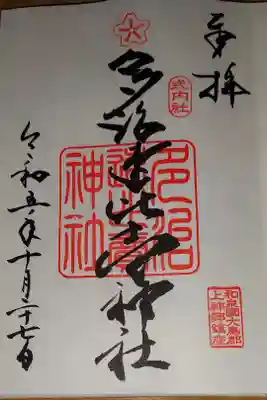 奉拝
式内社
多治速比売神社
多治
速比売
神社
和泉國大鳥郡
令和五年十月二十七日